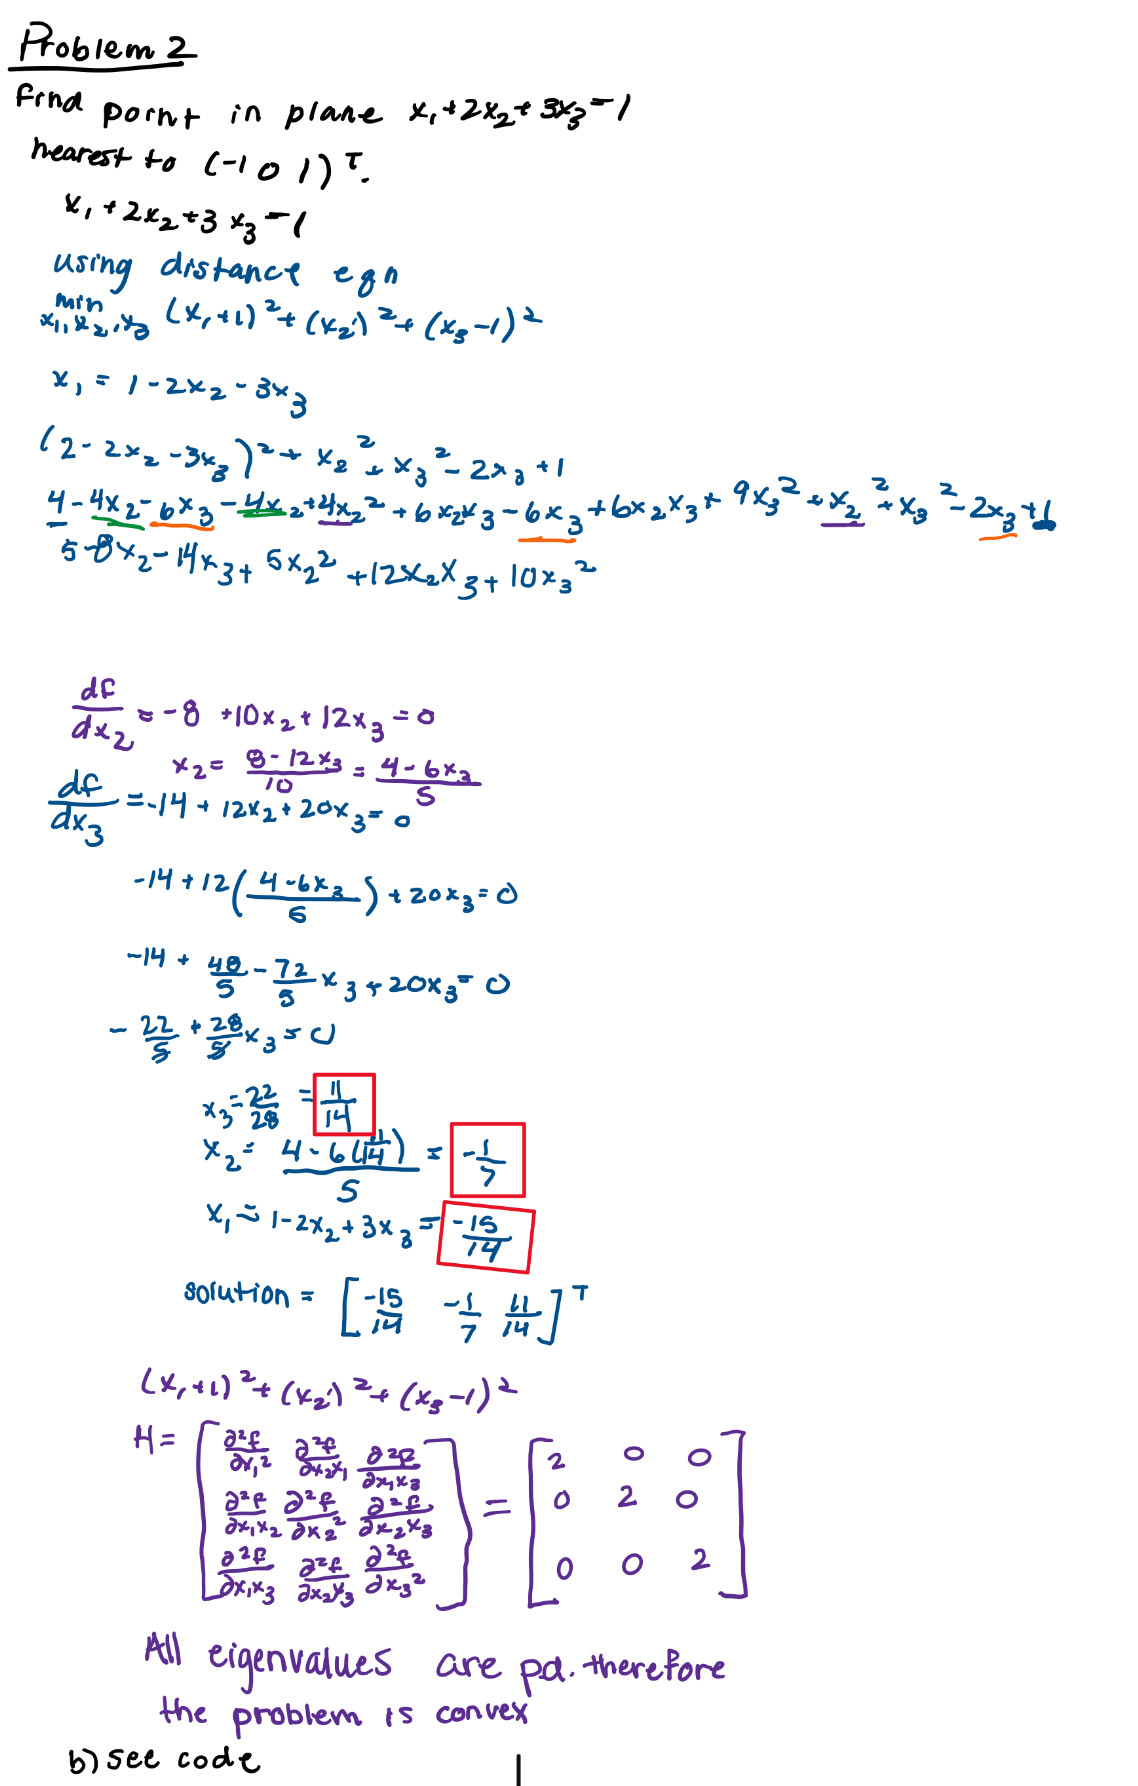 Problem 2
Find point in plane x₁+2x₂+3x₃=1
nearest to (-1 0 1)ᵀ.
x₁+2x₂+3x₃=1
using distance eqn
min x₁,x₂,x₃ (x₁+1)²+(x₂)²+(x₃-1)²
x₁ = 1-2x₂-3x₃
(2-2x₂-3x₃)²+x₂²+x₃²-2x₃+1
4-4x₂-6x₃-4x₂+4x₂²+6x₂x₃-6x₃+6x₂x₃+9x₃²+x₂²+x₃²-2x₃+1
5-8x₂-14x₃+5x₂²+12x₂x₃+10x₃²
df/dx₂ = -8+10x₂+12x₃=0
x₂ = (8-12x₃)/10 = (4-6x₃)/5
df/dx₃ = -14+12x₂+20x₃=0
-14+12((4-6x₃)/5)+20x₃=0
-14+48/5-72/5x₃+20x₃=0
-22/5+28/5x₃=0
x₃=22/28 = 11/14
x₂ = (4-6(11/14))/5 = -1/7
x₁ = 1-2x₂+3x₃ = -15/14
solution = [-15/14 -1/7 11/14]ᵀ
(x₁+1)²+(x₂)²+(x₃-1)²
H = [∂²f/∂x₁² ∂²f/∂x₂x₁ ∂²f/∂x₁x₃ = [2 0 0
∂²f/∂x₁x₂ ∂²f/∂x₂² ∂²f/∂x₂x₃ 0 2 0
∂²f/∂x₁x₃ ∂²f/∂x₂x₃ ∂²f/∂x₃²] 0 0 2]
All eigenvalues are pd. therefore
the problem is convex
b) see code